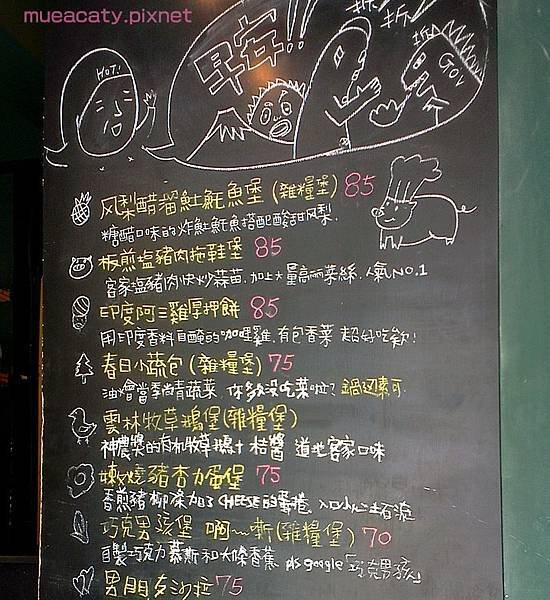 mueacaty.pixnet
HOT!
早安!!
折 折
GOV
风梨醋溜魠魠魚堡(雜糧堡) 85
糖醋口味的炸魠魠魚搭配酸甜风梨.
板煎塩豬肉拖鞋堡 85
客家塩豬肉快炒蒜苗.加上大量高麗菜絲.人氣NO.1
印度阿三雞厚押餅 85
用印度香料自醃的咖哩雞.有包香菜 超好吃歐!
春日小蔬包(雜糧堡) 75
油燴當季尚青蔬菜 你多久沒吃菜啦? 鍋边素可.
雲林牧草鵝堡(雜糧堡)
神農獎的有机牧草鵝+桔醬 道地客家口味
嫩燒豬杏力蛋堡 75
香煎豬柳條加了CHEESE的蛋捲
巧克男孩堡 啊~嘶(雜糧堡) 70
自製巧克力慕斯和大條香蕉 pls google「巧克男孩」
男朋友沙拉 75